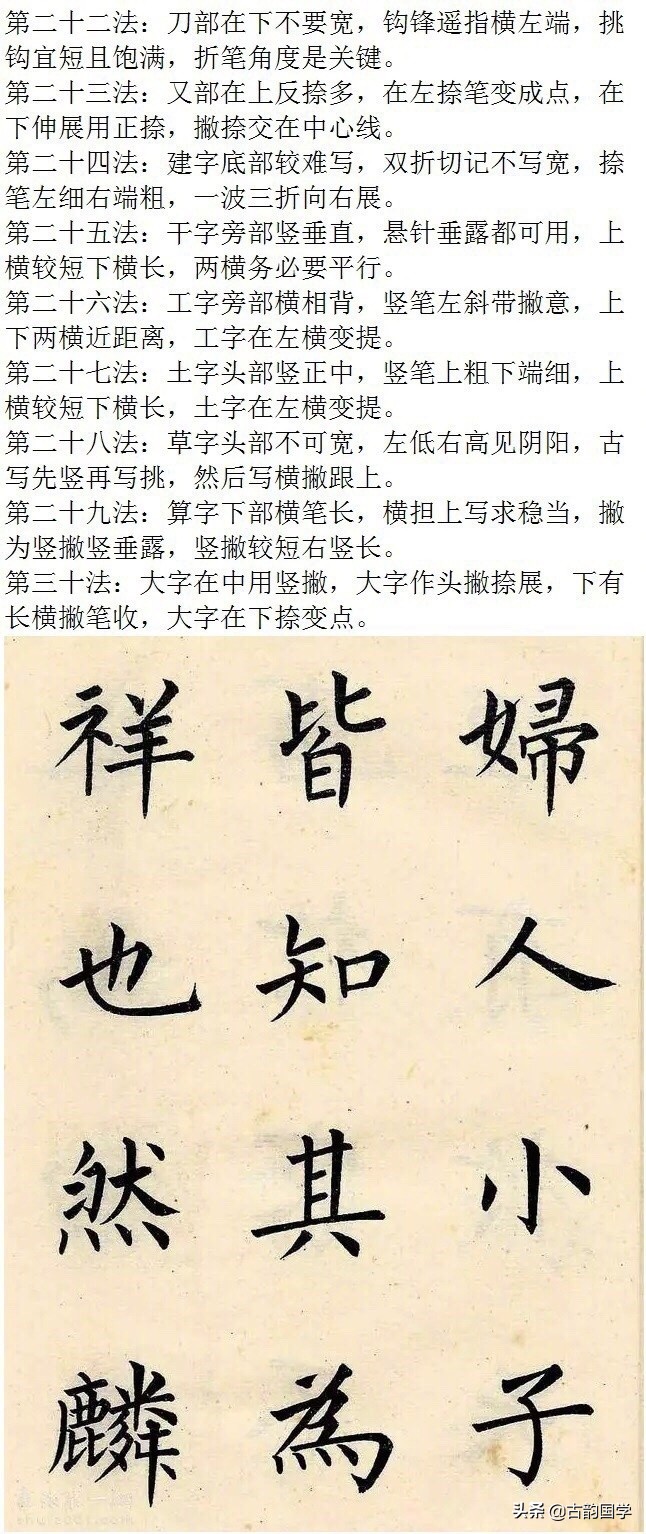 第二十二法：刀部在下不要宽，钩锋遥指横左端，挑
钩宜短且饱满，折笔角度是关键。
第二十三法：又部在上反捺多，在左捺笔变成点，在
下伸展用正捺，撇捺交在中心线。
第二十四法：建字底部较难写，双折切记不写宽，捺
笔左细右端粗，一波三折向右展。
第二十五法：干字旁部竖垂直，悬针垂露都可用，上
横较短下横长，两横务必要平行。
第二十六法：工字旁部横相背，竖笔左斜带撇意，上
下两横近距离，工字在左横变提。
第二十七法：土字头部竖正中，竖笔上粗下端细，上
横较短下横长，土字在左横变提。
第二十八法：草字头部不可宽，左低右高见阴阳，古
写先竖再写挑，然后写横撇跟上。
第二十九法：算字下部横笔长，横担上写求稳当，撇
为竖撇竖垂露，竖撇较短右竖长。
第三十法：大字在中用竖撇，大字作头撇捺展，下有
长横撇笔收，大字在下捺变点。
婦人小子
皆知其為
祥也然麟
头条 @古韵国学